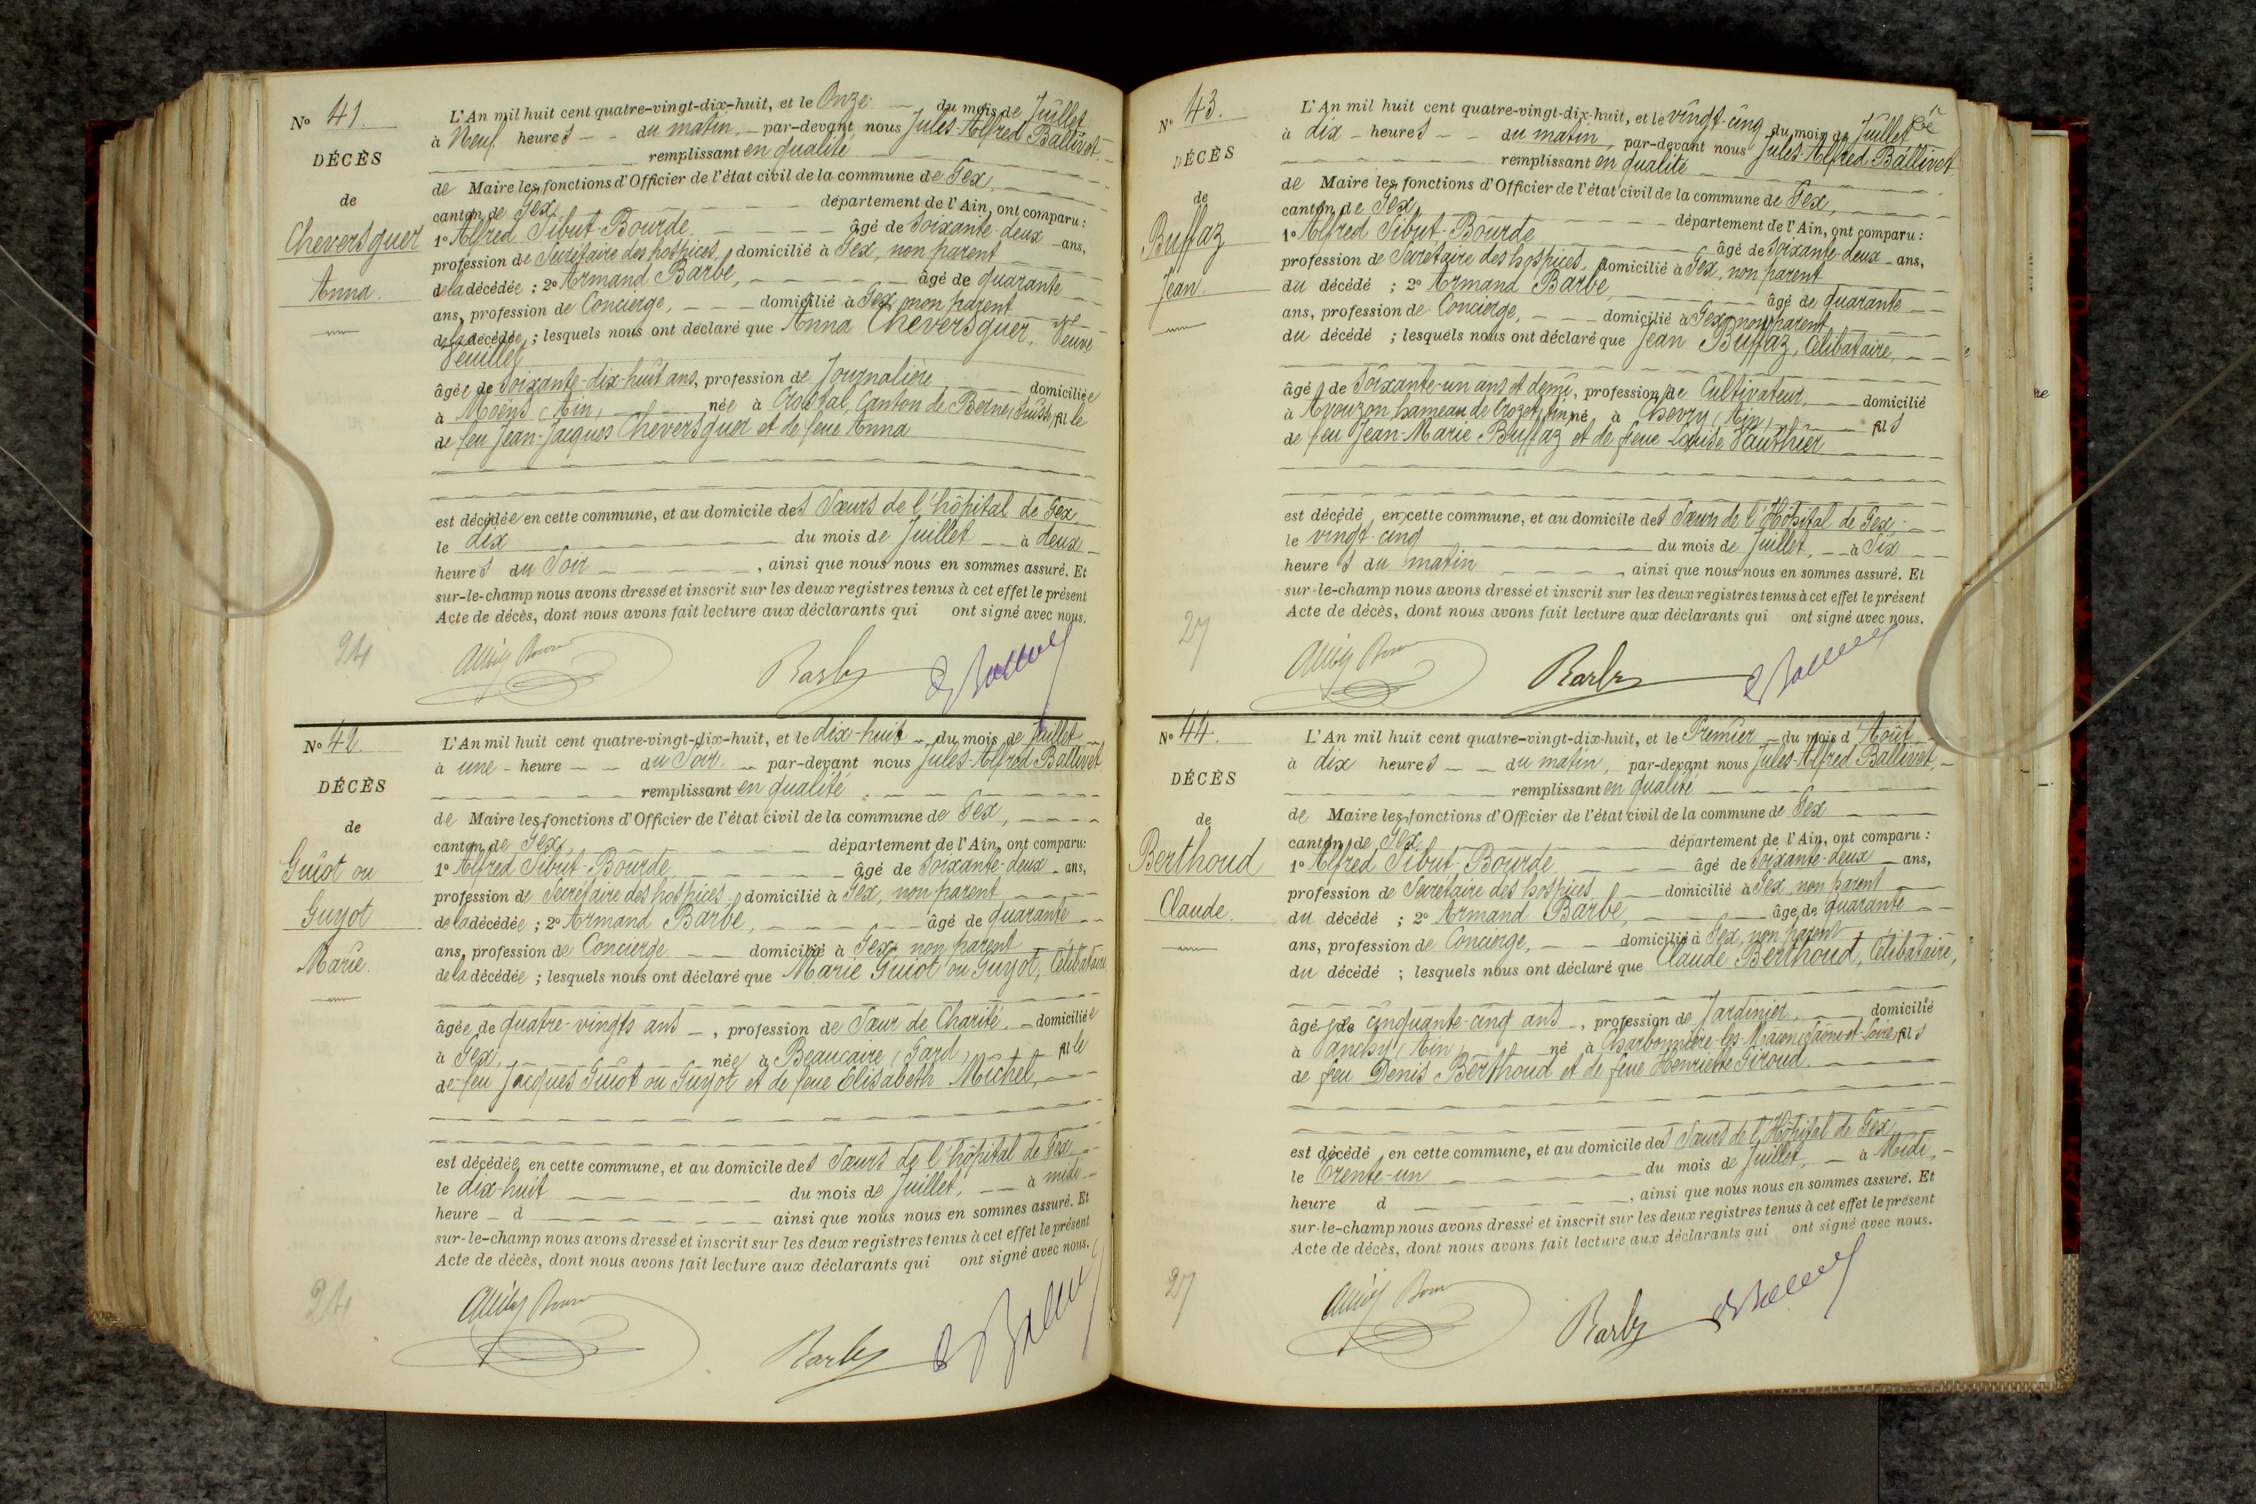 No 41.
DÉCÈS
de
Cheversquer
Anna.
L'An mil huit cent quatre-vingt-dix-huit, et le Onze du mois de Juillet
à Neuf heures du matin, par-devant nous Jules-Alfred Ballivet,
remplissant en qualité
de Maire les fonctions d'Officier de l'état civil de la commune de Gex,
canton de Gex, département de l'Ain, ont comparu :
1o Alfred Sibut-Bourde, âgé de Soixante-deux ans,
profession de Secrétaire des hospices, domicilié à Gex, non parent
de la décédée ; 2o Armand Barbe, âgé de quarante
ans, profession de Concierge, domicilié à Gex, non parent
de la décédée ; lesquels nous ont déclaré que Anna Cheversquer, Veuve
Veuillet
âgée de Soixante-dix-huit ans, profession de Journalière domiciliée
à Moëns (Ain) née à Canton de Berne, Suisse, fille
de feu Jean-Jacques Cheversquer et de feue Anna
est décédée en cette commune, et au domicile des Sœurs de l'hôpital de Gex
le dix du mois de Juillet à deux
heures du Soir, ainsi que nous nous en sommes assuré. Et
sur-le-champ nous avons dressé et inscrit sur les deux registres tenus à cet effet le présent
Acte de décès, dont nous avons fait lecture aux déclarants qui ont signé avec nous.
24
Barbe
No 42
DÉCÈS
de
Guiot ou
Guyot
Marie.
L'An mil huit cent quatre-vingt-dix-huit, et le dix-huit du mois de Juillet
à une heure du Soir, par-devant nous Jules-Alfred Ballivet
remplissant en qualité
de Maire les fonctions d'Officier de l'état civil de la commune de Gex,
canton de Gex, département de l'Ain, ont comparu:
1o Alfred Sibut-Bourde âgé de Soixante-deux ans,
profession de Secrétaire des hospices, domicilié à Gex, non parent
de la décédée ; 2o Armand Barbe, âgé de quarante
ans, profession de Concierge domicilié à Gex, non parent
de la décédée ; lesquels nous ont déclaré que Marie Guiot ou Guyot, Célibataire
âgée de quatre-vingts ans, profession de Sœur de Charité, domiciliée
à Gex, née à Beaucaire (Gard) fille
de feu Jacques Guiot ou Guyot et de feue Elisabeth Michel,
est décédée en cette commune, et au domicile des Sœurs de l'hôpital de Gex
le dix-huit du mois de Juillet, à midi
heure d ainsi que nous nous en sommes assuré. Et
sur-le-champ nous avons dressé et inscrit sur les deux registres tenus à cet effet le présent
Acte de décès, dont nous avons fait lecture aux déclarants qui ont signé avec nous.
24
Barbe
No 43.
DÉCÈS
de
Buffaz
Jean.
L'An mil huit cent quatre-vingt-dix-huit, et le vingt-cinq du mois de Juillet
à dix heures du matin, par-devant nous Jules-Alfred Ballivet
remplissant en qualité
de Maire les fonctions d'Officier de l'état civil de la commune de Gex,
canton de Gex, département de l'Ain, ont comparu :
1o Alfred Sibut-Bourde âgé de Soixante-deux ans,
profession de Secrétaire des hospices, domicilié à Gex, non parent
du décédé ; 2o Armand Barbe, âgé de quarante
ans, profession de Concierge, domicilié à Gex, non parent
du décédé ; lesquels nous ont déclaré que Jean Buffaz, Célibataire,
âgé de Soixante-un ans et demi, profession de Cultivateur, domicilié
à Avouzon hameau de Crozet, Ain, né à Chevry (Ain), fils
de feu Jean-Marie Buffaz et de feue Louise Vauthier
est décédé en cette commune, et au domicile des Sœurs de l'Hôpital de Gex
le vingt-cinq du mois de Juillet, à Six
heures du matin, ainsi que nous nous en sommes assuré. Et
sur-le-champ nous avons dressé et inscrit sur les deux registres tenus à cet effet le présent
Acte de décès, dont nous avons fait lecture aux déclarants qui ont signé avec nous.
27
Barbe
No 44.
DÉCÈS
de
Berthoud
Claude.
L'An mil huit cent quatre-vingt-dix-huit, et le Premier du mois d'Août
à dix heures du matin, par-devant nous Jules-Alfred Ballivet,
remplissant en qualité
de Maire les fonctions d'Officier de l'état civil de la commune de Gex
canton de Gex département de l'Ain, ont comparu :
1o Alfred Sibut-Bourde âgé de Soixante-deux ans,
profession de Secrétaire des hospices, domicilié à Gex, non parent
du décédé ; 2o Armand Barbe, âgé de quarante
ans, profession de Concierge, domicilié à Gex, non parent
du décédé ; lesquels nous ont déclaré que Claude Berthoud, Célibataire,
âgé de cinquante-cinq ans, profession de Jardinier, domicilié
à (Ain) né à Charbonnière-les-Macon (Saône-et-Loire) fils
de feu Denis Berthoud et de feue Henriette Giroud.
est décédé en cette commune, et au domicile des Sœurs de l'Hôpital de Gex
le Trente-un du mois de Juillet, à Midi,
heure d, ainsi que nous nous en sommes assuré. Et
sur-le-champ nous avons dressé et inscrit sur les deux registres tenus à cet effet le présent
Acte de décès, dont nous avons fait lecture aux déclarants qui ont signé avec nous.
27
Barbe